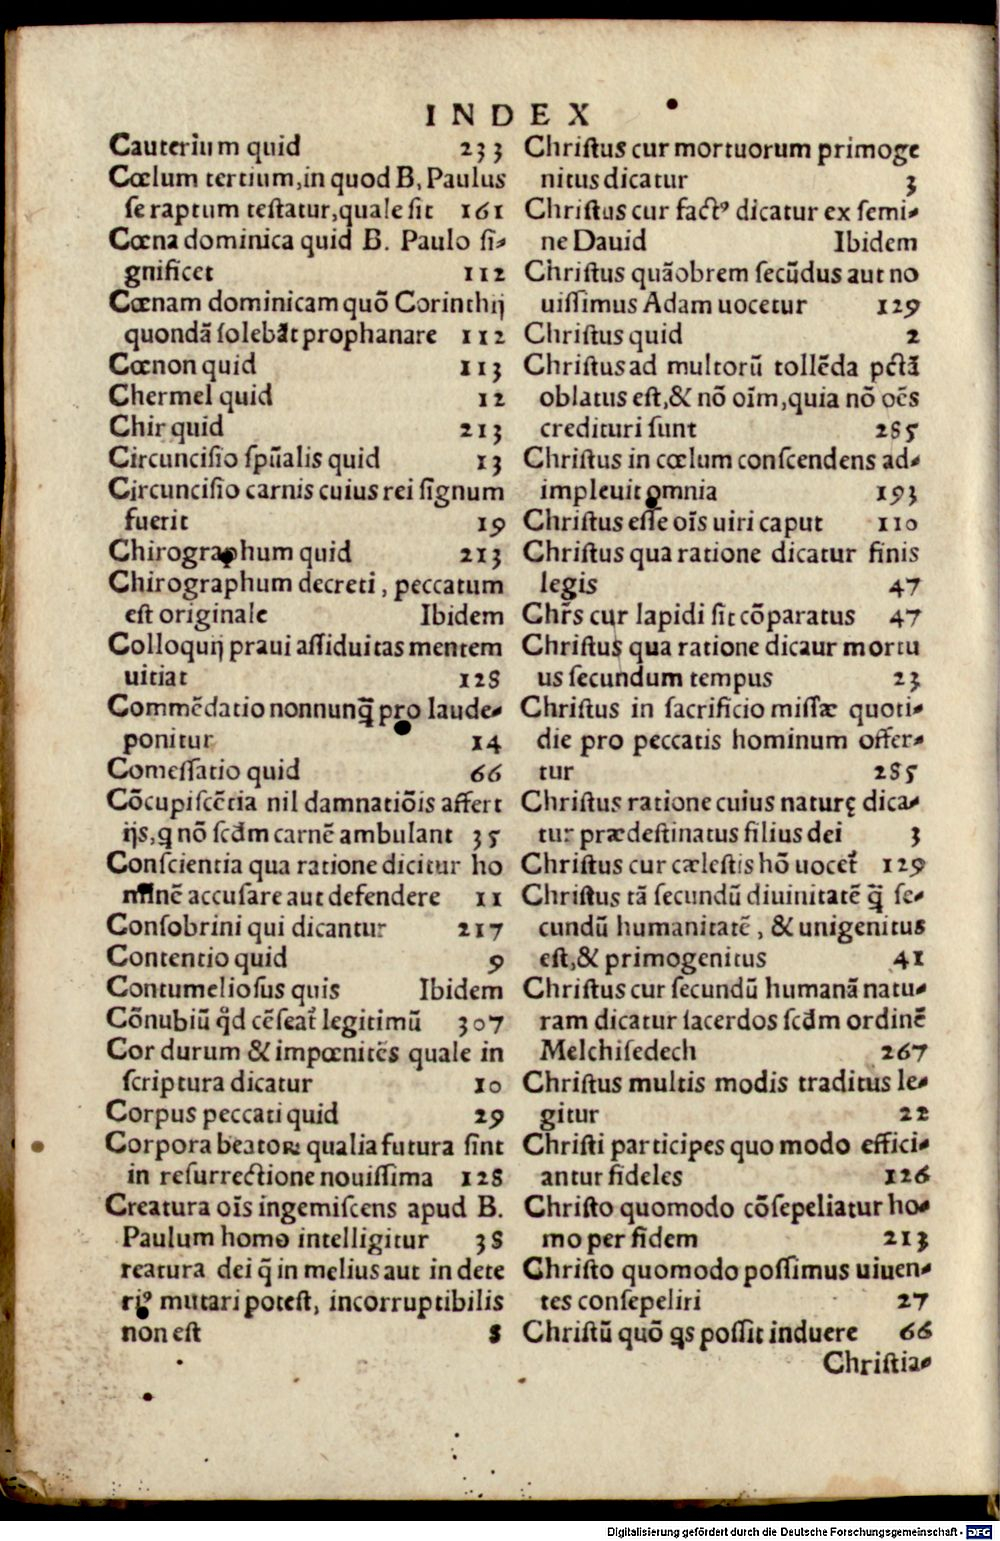 INDEX
Cauterium quid 233
Cœlum tertium, in quod B, Paulus
se raptum testatur, quale sit 161
Cœna dominica quid B. Paulo si-
gnificet 112
Cœnam dominicam quõ Corinthij
quondã solebãt prophanare 112
Cœnon quid 113
Chermel quid 12
Chir quid 213
Circuncisio spũalis quid 13
Circuncisio carnis cuius rei signum
fuerit 19
Chirographum quid 213
Chirographum decreti, peccatum
est originale Ibidem
Colloquij praui assiduitas mentem
uitiat 128
Commẽdatio nonnunq̃ pro laude-
ponitur 14
Comessatio quid 66
Cõcupiscẽtia nil damnatiõis affert
ijs, q nõ scđm carnẽ ambulant 35
Conscientia qua ratione dicitur ho
minẽ accusare aut defendere 11
Consobrini qui dicantur 217
Contentio quid 9
Contumeliosus quis Ibidem
Cõnubiũ qd cẽseat legitimũ 307
Cor durum & impœnitẽs quale in
scriptura dicatur 10
Corpus peccati quid 29
Corpora beatoꝝ qualia futura sint
in resurrectione nouissima 128
Creatura oĩs ingemiscens apud B.
Paulum homo intelligitur 38
reatura dei q̃ in melius aut in dete
riꝰ mutari potest, incorruptibilis
non est 8
Christus cur mortuorum primoge
nitus dicatur 3
Christus cur factꝰ dicatur ex semi-
ne Dauid Ibidem
Christus quãobrem secũdus aut no
uissimus Adam uocetur 129
Christus quid 2
Christus ad multorũ tollẽda pctã
oblatus est, & nõ oĩm, quia nõ oẽs
credituri sunt 285
Christus in cœlum conscendens ad-
impleuit omnia 193
Christus esse oĩs uiri caput 110
Christus qua ratione dicatur finis
legis 47
Chr̃s cur lapidi sit cõparatus 47
Christus qua ratione dicaur mortu
us secundum tempus 23
Christus in sacrificio missæ quoti-
die pro peccatis hominum offer-
tur 285
Christus ratione cuius naturę dica-
tur prædestinatus filius dei 3
Christus cur cælestis hõ uocet 129
Christus tã secundũ diuinitatẽ q̃ se-
cundũ humanitatẽ, & unigenitus
est, & primogenitus 41
Christus cur secundũ humanã natu-
ram dicatur sacerdos scđm ordinẽ
Melchisedech 267
Christus multis modis traditus le-
gitur 22
Christi participes quo modo effici-
antur fideles 126
Christo quomodo cõsepeliatur ho-
mo per fidem 213
Christo quomodo possimus uiuen-
tes consepeliri 27
Christũ quõ qs possit induere 66
Christia-
Digitalisierung gefördert durch die Deutsche Forschungsgemeinschaft - DFG